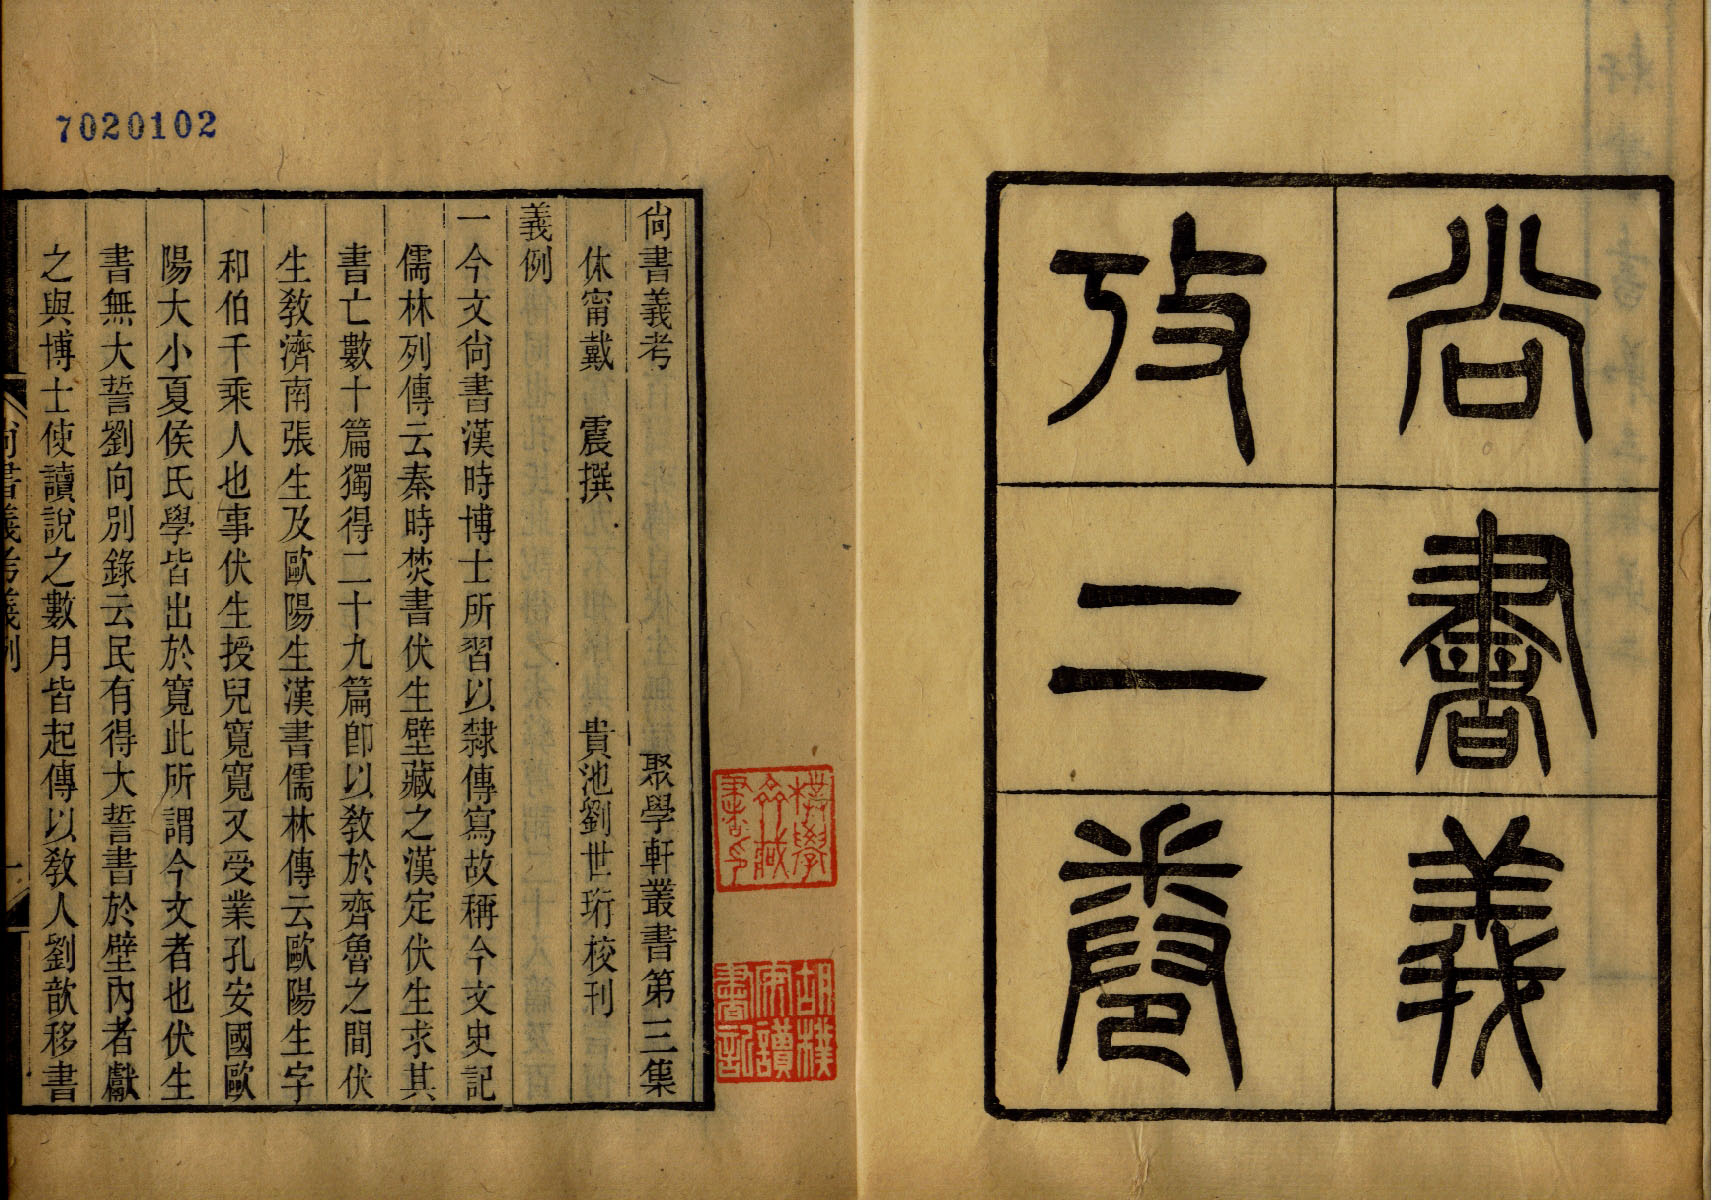 尙書義
攷二卷
7020102
尙書義考
聚學軒叢書第三集
休甯戴 震撰
貴池劉世珩校刊
義例
一今文尙書漢時博士所習以隸傳寫故稱今文史記
儒林列傳云秦時焚書伏生壁藏之漢定伏生求其
書亡數十篇獨得二十九篇卽以敎於齊魯之間伏
生敎濟南張生及歐陽生漢書儒林傳云歐陽生字
和伯千乘人也事伏生授兒寬寬又受業孔安國歐
陽大小夏侯氏學皆出於寬此所謂今文者也伏生
書無大誓劉向別錄云民有得大誓書於壁內者獻
之與博士使讀說之數月皆起傳以敎人劉歆移書
尙書義考義例
一
樸學齋藏書印
胡樸安讀書記